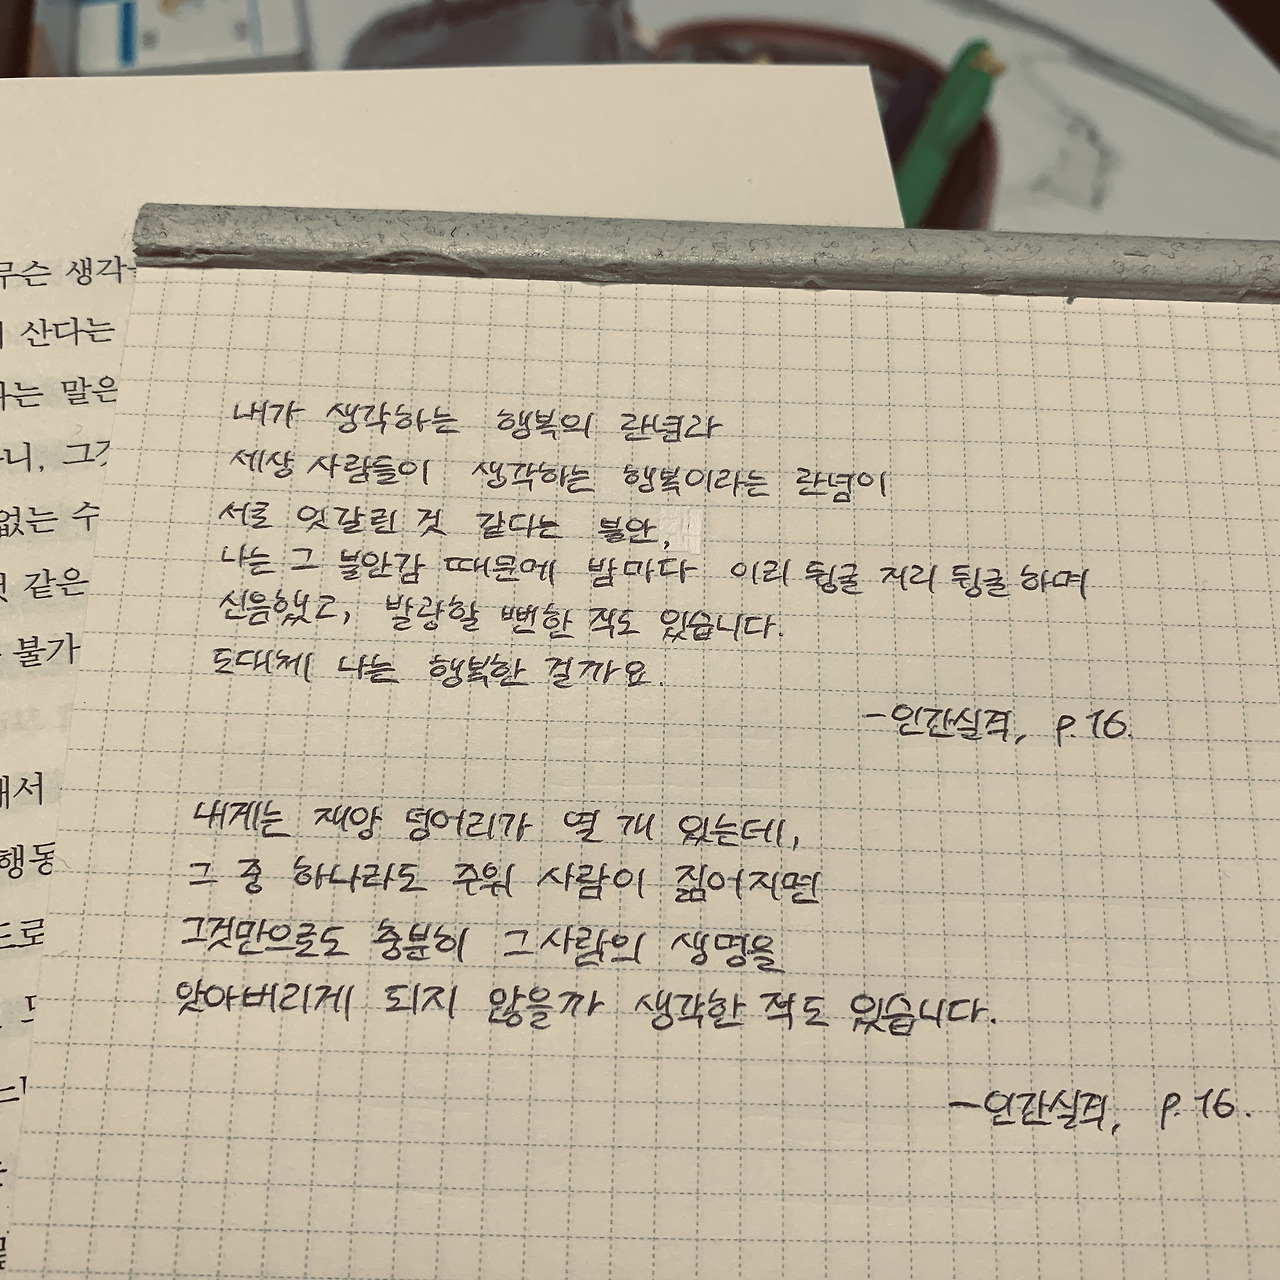 무슨 생각
산다는
는 말은
니, 그
없는 수
같은
불가
서
행동
드로
내가 생각하는 행복의 관념과
세상 사람들이 생각하는 행복이라는 관념이
서로 엇갈린 것 같다는 불안,
나는 그 불안감 때문에 밤마다 이리 뒹굴 저리 뒹굴 하며
신음했고, 발광할 뻔한 적도 있습니다.
도대체 나는 행복한 걸까요.
-인간실격, p.16.
내게는 재앙 덩어리가 열 개 있는데,
그 중 하나라도 주위 사람이 짊어지면
그것만으로도 충분히 그 사람의 생명을
앗아버리게 되지 않을까 생각한 적도 있습니다.
-인간실격, p.16.